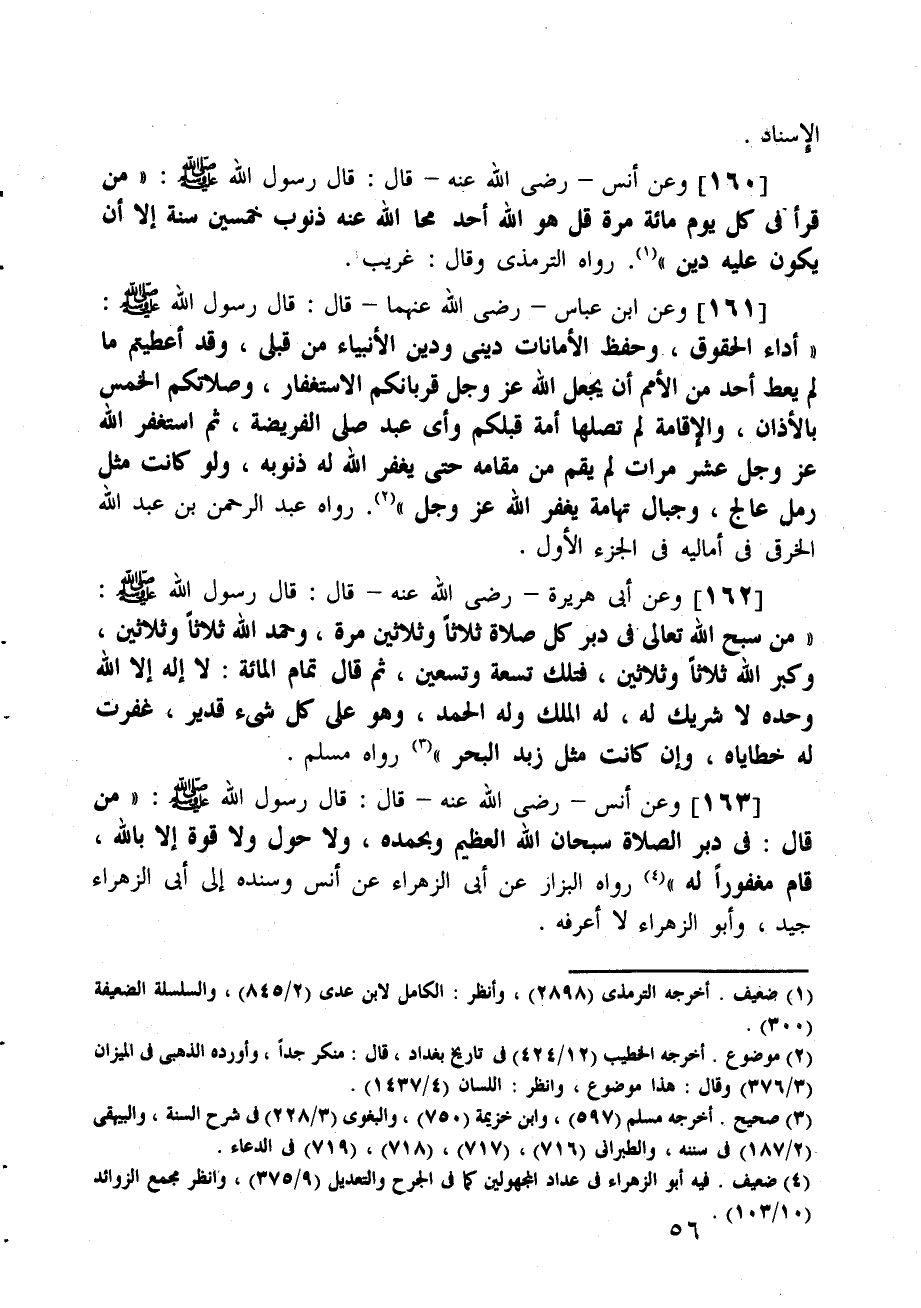 الإسناد .
[١٦٠] وعن أنس – رضى الله عنه – قال : قال رسول الله ﷺ : « من
قرأ فى كل يوم مائة مرة قل هو الله أحد محا الله عنه ذنوب خمسين سنة إلا أن
يكون عليه دين »(١). رواه الترمذى وقال : غريب .
[١٦١] وعن ابن عباس – رضى الله عنهما – قال : قال رسول الله ﷺ :
« أداء الحقوق ، وحفظ الأمانات دينى ودين الأنبياء من قبلى ، وقد أعطيتم ما
لم يعط أحد من الأمم أن يجعل الله عز وجل قربانكم الاستغفار ، وصلاتكم الخمس
بالأذان ، والإقامة لم تصلها أمة قبلكم وأى عبد صلى الفريضة ، ثم استغفر الله
عز وجل عشر مرات لم يقم من مقامه حتى يغفر الله له ذنوبه ، ولو كانت مثل
رمل عالج ، وجبال تهامة يغفر الله عز وجل »(٢). رواه عبد الرحمن بن عبد الله
الخرقى فى أماليه فى الجزء الأول .
[١٦٢] وعن أبى هريرة – رضى الله عنه – قال : قال رسول الله ﷺ :
« من سبح الله تعالى فى دبر كل صلاة ثلاثاً وثلاثين مرة ، وحمد الله ثلاثاً وثلاثين ،
وكبر الله ثلاثاً وثلاثين ، فتلك تسعة وتسعين ، ثم قال تمام المائة : لا إله إلا الله
وحده لا شريك له ، له الملك وله الحمد ، وهو على كل شىء قدير ، غفرت
له خطاياه ، وإن كانت مثل زبد البحر »(٣) رواه مسلم .
[١٦٣] وعن أنس – رضى الله عنه – قال : قال رسول الله ﷺ : « من
قال : فى دبر الصلاة سبحان الله العظيم وبحمده ، ولا حول ولا قوة إلا بالله ،
قام مغفوراً له »(٤) رواه البزاز عن أبى الزهراء عن أنس وسنده إلى أبى الزهراء
جيد ، وأبو الزهراء لا أعرفه .
(١) ضعيف . أخرجه الترمذى (٢٨٩٨) ، وأنظر : الكامل لابن عدى (٨٤٥/٢) ، والسلسلة الضعيفة
(٣٠٠) .
(٢) موضوع . أخرجه الخطيب (٤٢٤/١٢) فى تاريخ بغداد ، قال : منكر جداً ، وأورده الذهبى فى الميزان
(٣٧٦/٣) وقال : هذا موضوع ، وانظر : اللسان (١٤٣٧/٤) .
(٣) صحيح . أخرجه مسلم (٥٩٧) ، وابن خزيمة (٧٥٠) ، والبغوى (٢٢٨/٣) فى شرح السنة ، والبيهقى
(١٨٧/٢) فى سننه ، والطبرانى (٧١٦) ، (٧١٧) ، (٧١٨) ، (٧١٩) فى الدعاء .
(٤) ضعيف . فيه أبو الزهراء فى عداد المجهولين كما فى الجرح والتعديل (٣٧٥/٩) ، وانظر مجمع الزوائد
(١٠٣/١٠) .
٥٦